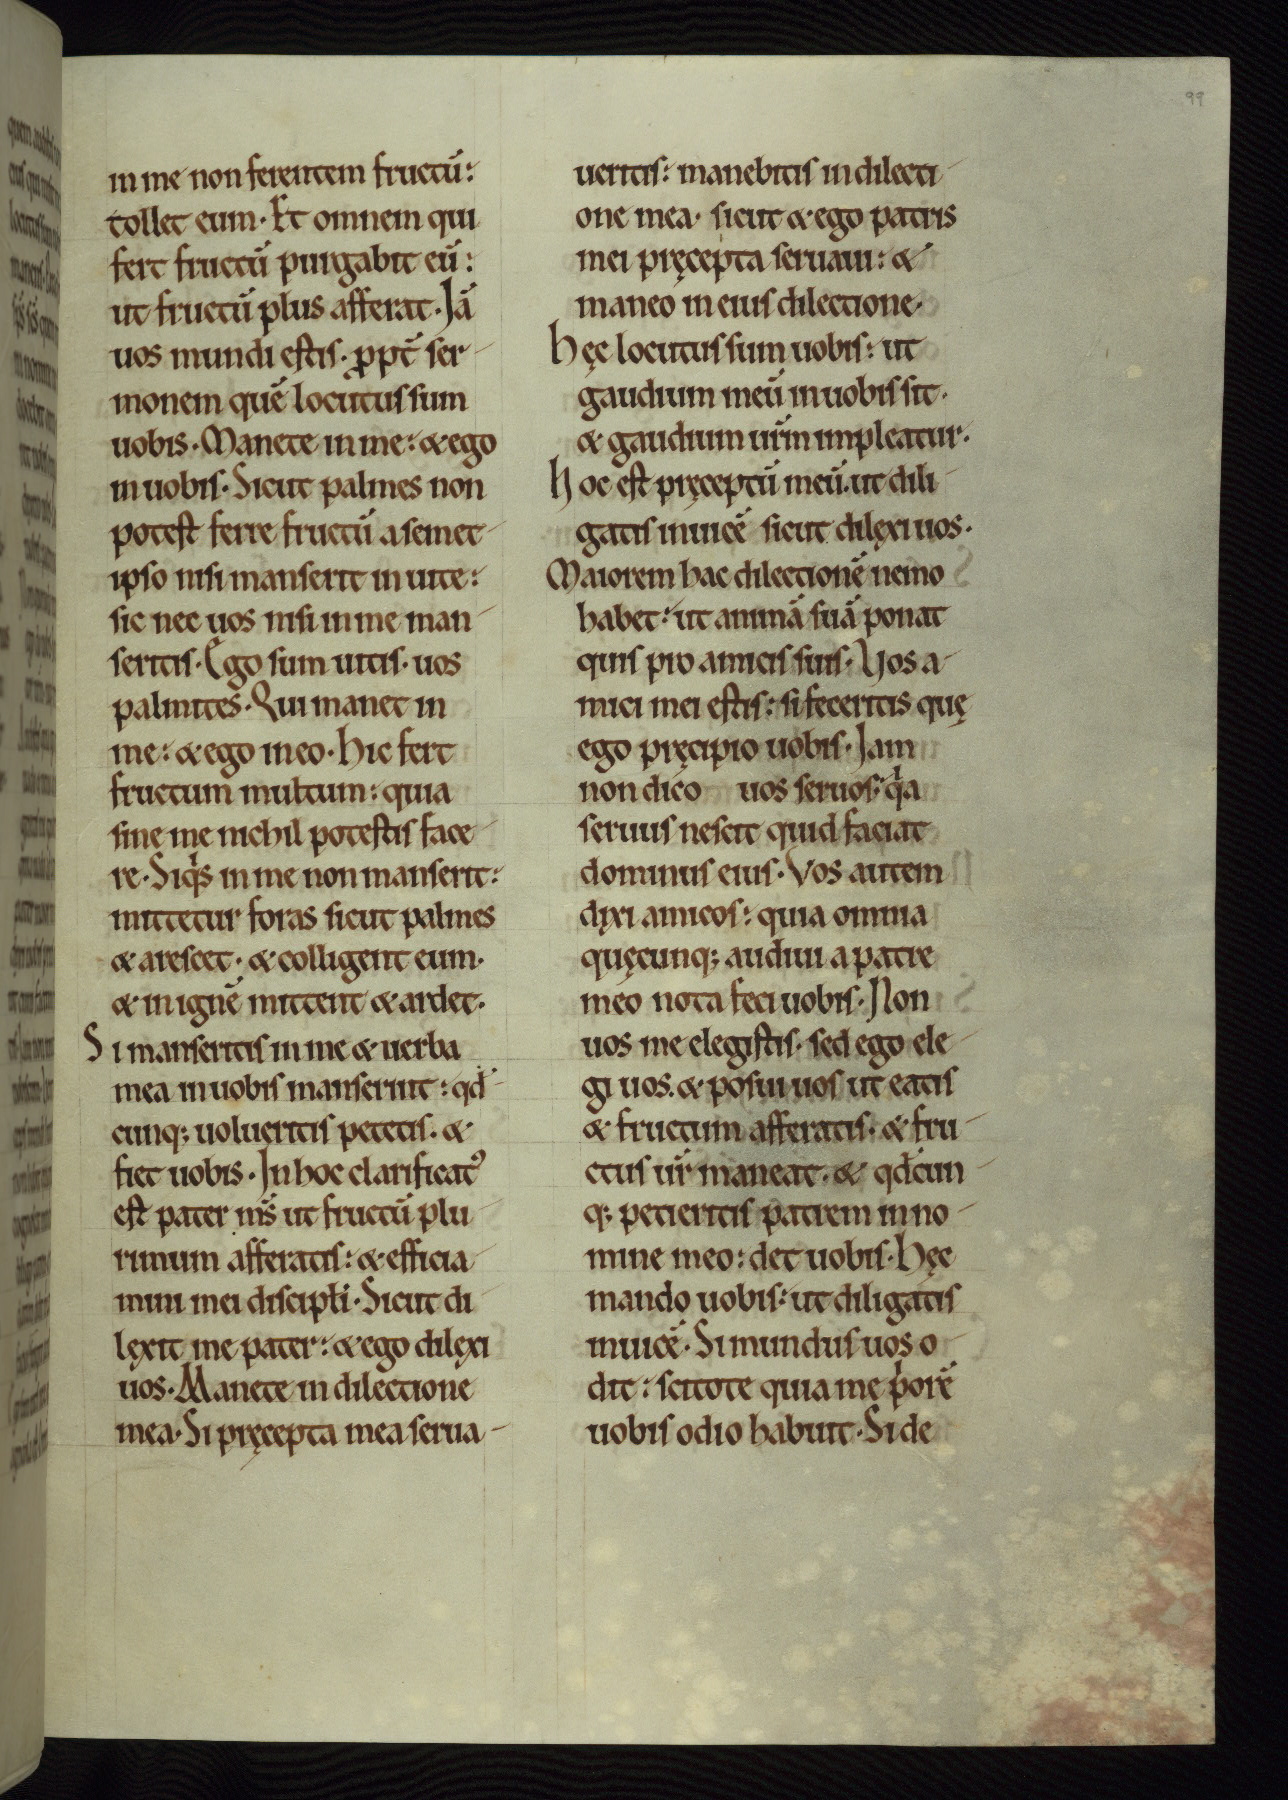 99
in me non ferentem fructū:
tollet eum· Et omnem qui
fert fructū purgabit eū:
ut fructū plus afferat· Jā
uos mundi estis· ꝓpt̄ ser-
monem quē locutus sum
uobis· Manete in me: & ego
in uobis· Sicut palmes non
potest ferre fructū a semet-
ipso nisi manserit in uite:
sic nec uos nisi in me man-
seritis· Ego sum uitis· uos
palmites· Qui manet in
me: & ego in eo· hic fert
fructum multum: quia
sine me nichil potestis face-
re· Siqͥs in me non manserit:
mittetur foras sicut palmes
& arescet· & colligent eum·
& in ignē mittent & ardet·
Si manseritis in me & uerba
mea in uobis manserint: qd̄-
cunq; uolueritis petetis· &
fiet uobis· Jn hoc clarificatꝰ
est pater ms̄ ut fructū plu-
rimum afferatis: & efficia-
mini mei discipłi· Sicut di-
lęxit me pater: & ego dilęxi
uos· Manete in dilectione
mea· Si pręcepta mea serua-
ueritis: manebitis in dilecti-
one mea· sicut & ego patris
mei pręcepta seruaui: &
maneo in eius dilectione·
hęc locutus sum uobis: ut
gaudium meū in uobis sit·
& gaudium ur̄m impleatur·
hoc est pręceptū meū· ut dili-
gatis inuicē sicut dilęxi uos·
Maiorem hac dilectionē nemo
habet: ut animā suā ponat
quis pro amicis suis· Vos a-
mici mei estis: si feceritis quę
ego pręcipio uobis· Jam
non dico uos seruos: qͥa
seruus nescit quid faciat
dominus eius· Vos autem
dixi amicos: quia omnia
quęcunq; audiui a patre
meo nota feci uobis· Non
uos me elegistis· sed ego ele-
gi uos· & posui uos ut eatis
& fructum afferatis· & fru-
ctus ur̄ maneat· & qd̄cun-
q; petieritis patrem in no-
mine meo: det uobis· Hęc
mando uobis: ut diligatis
inuicē· Si mundus uos o-
dit: scitote quia me pͥorē
uobis odio habuit· Si de